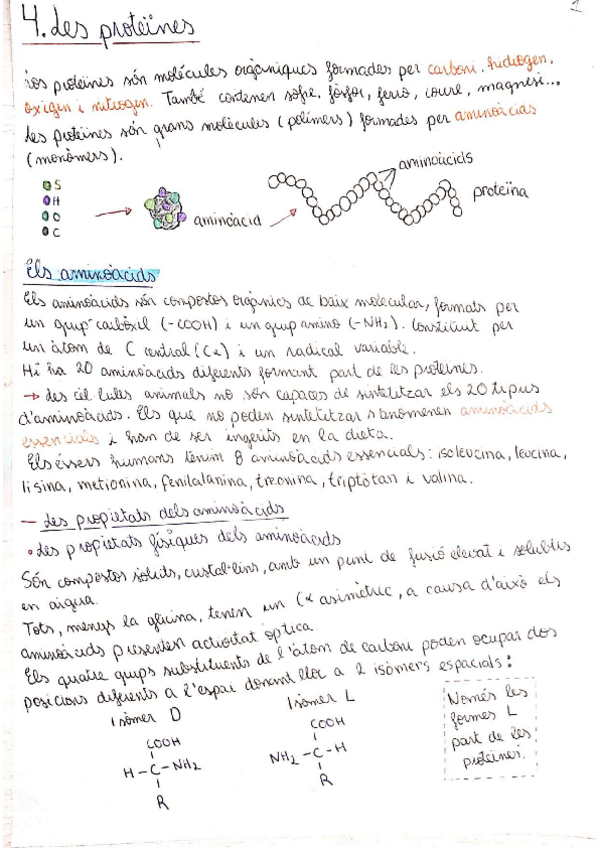 1
4. Les proteïnes
Les proteïnes són molècules orgàniques formades per carboni, hidrogen,
oxigen i nitrogen. També contenen sofre, fòsfor, ferro, coure, magnesi...
Les proteïnes són grans molècules (polímers) formades per aminoàcids
(monòmers).
S
H
O
C
aminoàcid
aminoàcids
proteïna
Els aminoàcids
Els aminoàcids són compostos orgànics de baix molecular, formats per
un grup carbòxil (-COOH) i un grup amino (-NH2). Constituït per
un àtom de C central (Cα) i un radical variable.
Hi ha 20 aminoàcids diferents formant part de les proteïnes.
→ Les cèl·lules animals no són capaces de sintetitzar els 20 tipus
d'aminoàcids. Els que no poden sintetitzar s'anomenen aminoàcids
essencials i han de ser ingerits en la dieta.
Els éssers humans tenim 8 aminoàcids essencials: isoleucina, leucina,
lisina, metionina, fenilalanina, treonina, triptòtan i valina.
- Les propietats dels aminoàcids
• Les propietats físiques dels aminoàcids
Són compostos sòlids, cristal·lins, amb un punt de fusió elevat i solubles
en aigua.
Tots, menys la glicina, tenen un Cα asimètric, a causa d'això els
aminoàcids presenten activitat òptica.
Els quatre grups substituents de l'àtom de carboni poden ocupar dos
posicions diferents a l'espai donant lloc a 2 isòmers espacials:
Isòmer D
COOH
H-C-NH2
R
Isòmer L
COOH
NH2-C-H
R
Només les
formes L
part de les
proteïnes.